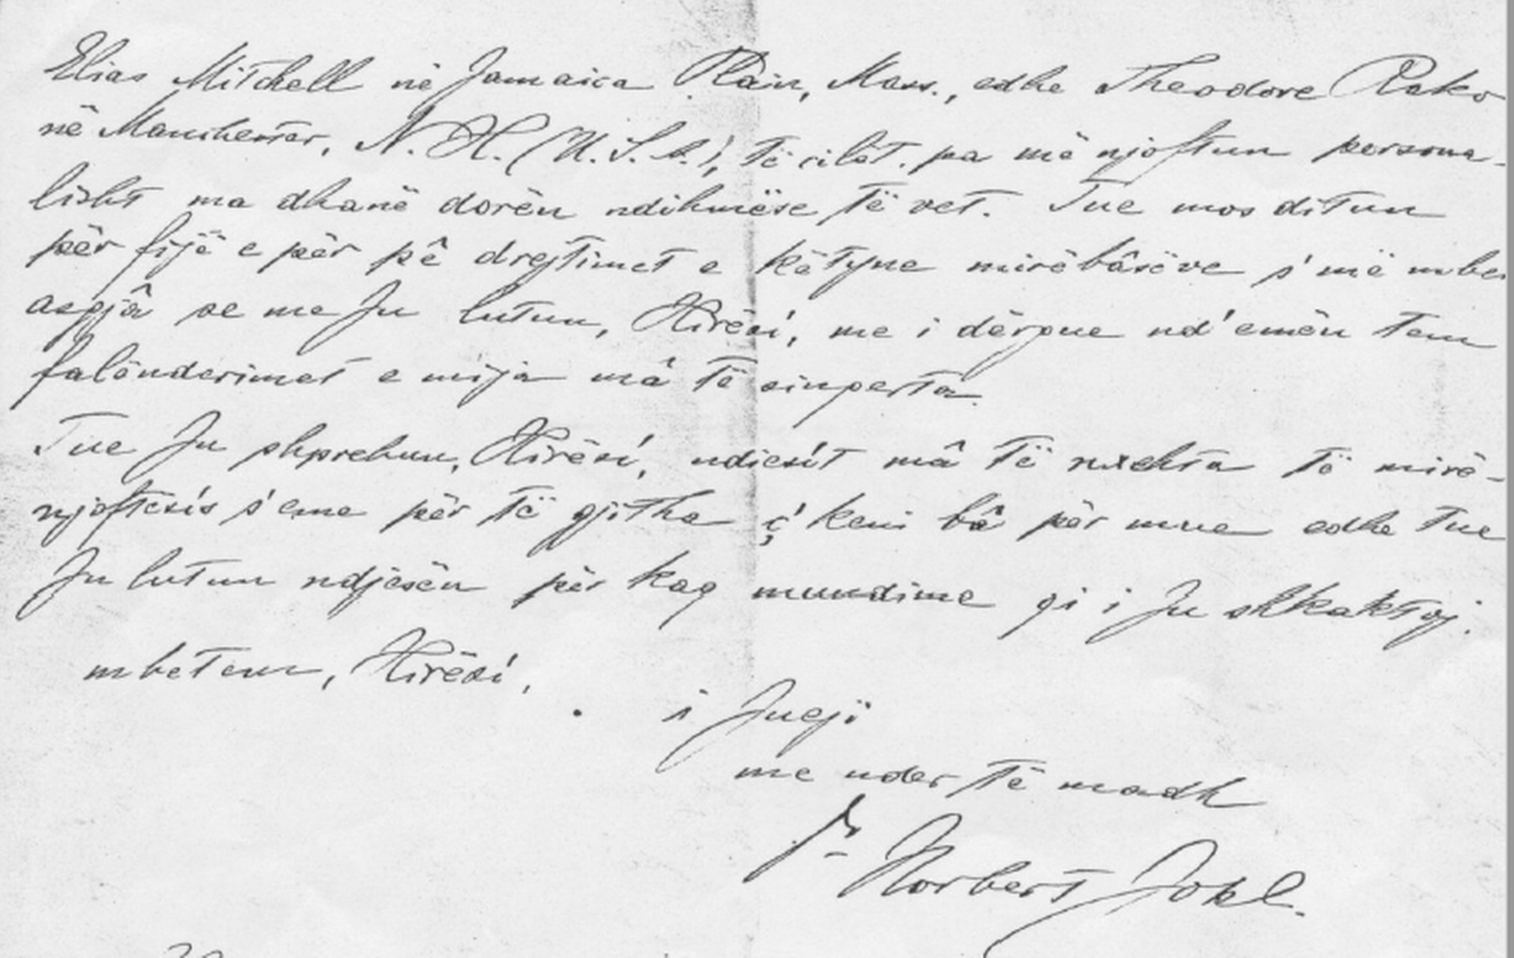 Elias Mitchell në Jamaica Plain, Mass., edhe Theodore Rako
në Manchester, N. H. (U. S. A.), të cilët, pa më njoftun persona-
lisht ma dhanë dorën ndihmëse të vet. Tue mos ditun
për fijë e për pê drejtimet e këtyne mirëbâsëve s'më mbe
asgjâ se me Ju lutun, Hirësí, me i dërgue nd'emën tem
falënderimet e mija mâ të sinqerta.
Tue Ju shprehun, Hirësí, ndiesít mâ të nxehta të mirë-
njoftesís s'eme për të gjitha ç' keni bâ për mue edhe tue
Ju lutun ndjesën për kaq mundime qi i Ju shkaktoj.
mbetem, Hirësí,
i Jueji
me nder të madh
Dr Norbert Jokl.